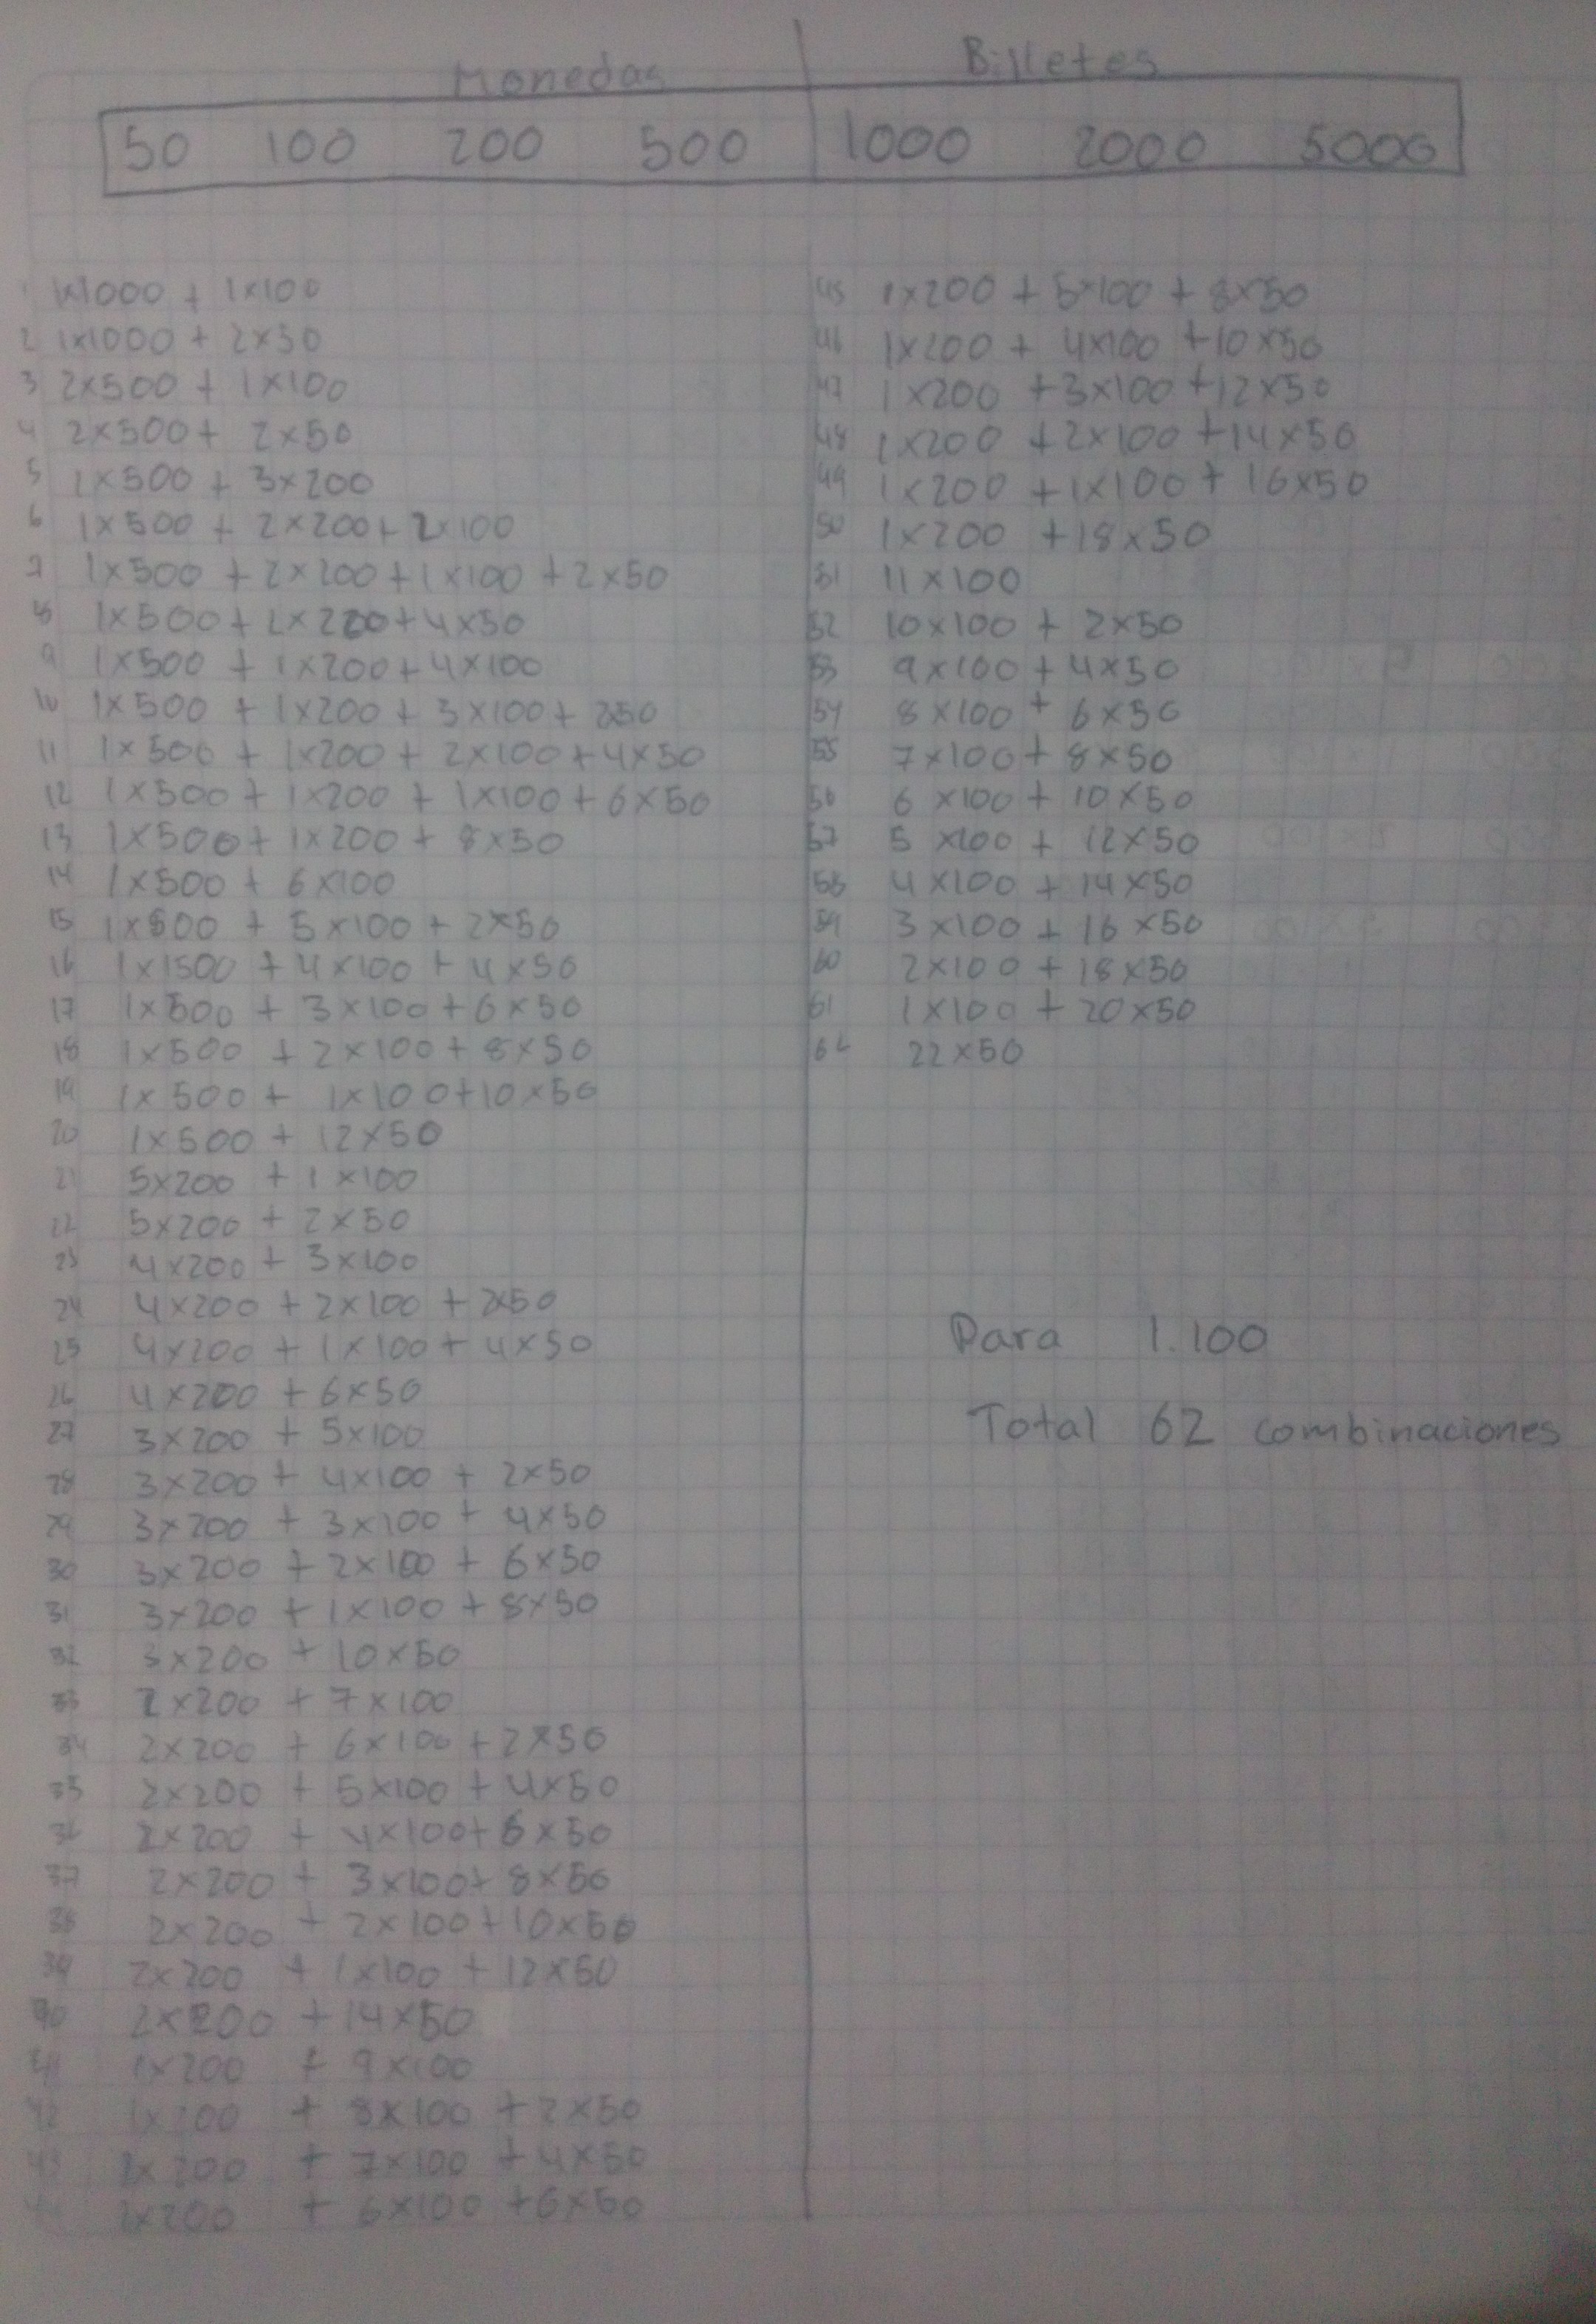 Monedas Billetes
50 100 200 500 1000 2000 5000
1 1x1000 + 1x100
2 1x1000 + 2x50
3 2x500 + 1x100
4 2x500 + 2x50
5 1x500 + 3x200
6 1x500 + 2x200 + 2x100
7 1x500 + 2x200 + 1x100 + 2x50
8 1x500 + 2x200 + 4x50
9 1x500 + 1x200 + 4x100
10 1x500 + 1x200 + 3x100 + 2x50
11 1x500 + 1x200 + 2x100 + 4x50
12 1x500 + 1x200 + 1x100 + 6x50
13 1x500 + 1x200 + 8x50
14 1x500 + 6x100
15 1x500 + 5x100 + 2x50
16 1x1500 + 4x100 + 4x50
17 1x500 + 3x100 + 6x50
18 1x500 + 2x100 + 8x50
19 1x500 + 1x100 + 10x50
20 1x500 + 12x50
21 5x200 + 1x100
22 5x200 + 2x50
23 4x200 + 3x100
24 4x200 + 2x100 + 2x50
25 4x200 + 1x100 + 4x50
26 4x200 + 6x50
27 3x200 + 5x100
28 3x200 + 4x100 + 2x50
29 3x200 + 3x100 + 4x50
30 3x200 + 2x100 + 6x50
31 3x200 + 1x100 + 8x50
32 3x200 + 10x50
33 2x200 + 7x100
34 2x200 + 6x100 + 2x50
35 2x200 + 5x100 + 4x50
36 2x200 + 4x100 + 6x50
37 2x200 + 3x100 + 8x50
38 2x200 + 2x100 + 10x50
39 2x200 + 1x100 + 12x50
40 2x200 + 14x50
41 1x200 + 9x100
42 1x200 + 8x100 + 2x50
43 1x200 + 7x100 + 4x50
1x200 + 6x100 + 6x50
45 1x200 + 5x100 + 8x50
46 1x200 + 4x100 + 10x50
47 1x200 + 3x100 + 12x50
48 1x200 + 2x100 + 14x50
49 1x200 + 1x100 + 16x50
50 1x200 + 18x50
51 11x100
52 10x100 + 2x50
53 9x100 + 4x50
54 8x100 + 6x50
55 7x100 + 8x50
56 6x100 + 10x50
57 5x100 + 12x50
58 4x100 + 14x50
59 3x100 + 16x50
60 2x100 + 18x50
61 1x100 + 20x50
62 22x50
Para 1.100
Total 62 combinaciones